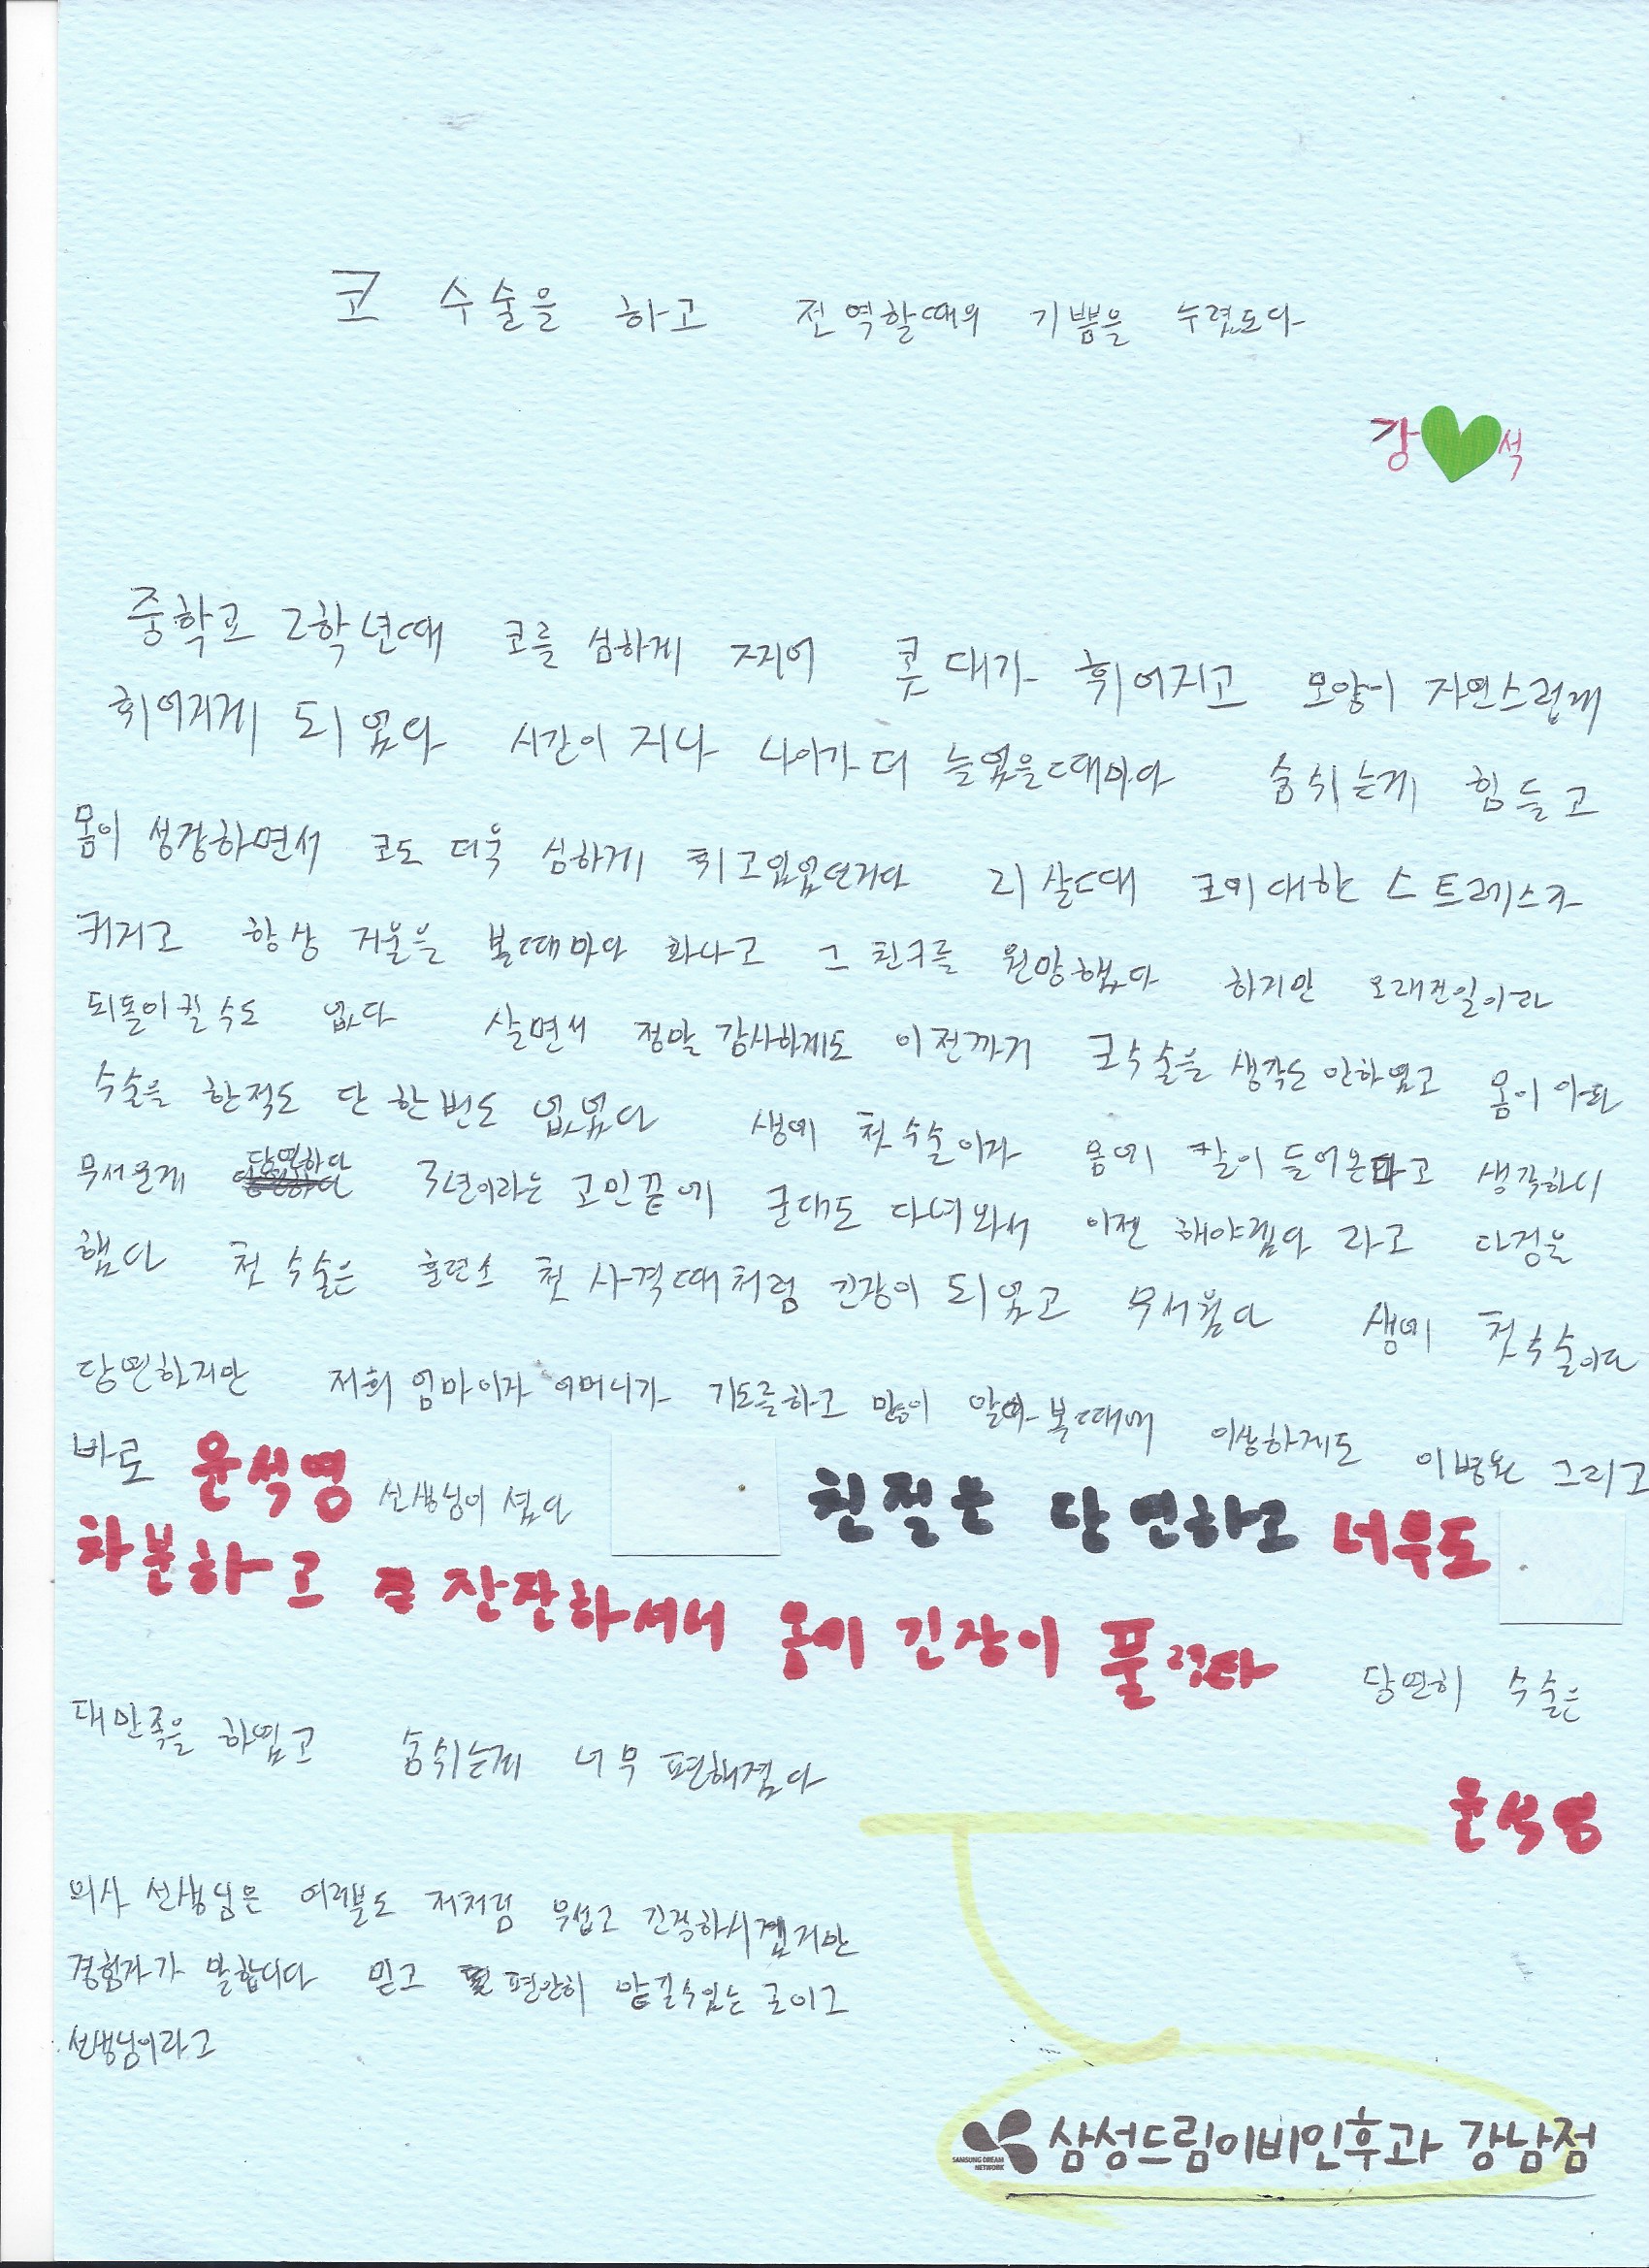 코 수술을 하고 전역할때의 기쁨을 누렸도다
강 석
중학교 2학년때 코를 심하게 찌어 콧대가 휘어지고 모양이 자연스럽게
휘어지게 되었다 시간이 지나 나이가 더 늘었을때마다 숨쉬는게 힘들고
몸이 성장하면서 코도 더욱 심하게 휘고있었던거다 21살때 코에대한 스트레스가
커지고 항상 거울을 볼때마다 화나고 그 친구를 원망했다 하지만 오래전일이라
되돌이킬 수도 없다 살면서 정말 감사하게도 이전까지 코수술을 생각도 안하였고 몸이 아파
수술을 한적도 단 한번도 없었다 생에 첫 수술이자 몸에 칼이 들어온다고 생각하니
무서운게 당연하다 3년이라는 고민끝에 군대도 다녀와서 이젠 해야겠다 라고 다짐을
했다 첫 수술은 훈련소 첫 사격때처럼 긴장이 되었고 무서웠다 생에 첫수술이다
당연하지만 저희 엄마이자 어머니가 기도를하고 많이 알아볼때에 이상하게도 이병원 그리고
바로 윤석영 선생님이 셨다 친절은 당연하고 너무도
차분하고 잔잔하셔서 몸에 긴장이 풀렸다 당연히 수술은
대만족을 하였고 숨쉬는게 너무 편해졌다
윤석영
의사 선생님은 여러분도 저처럼 무섭고 긴장하시겠지만
경험자가 말합니다 믿고 편안히 맡길수있는 곳이고
선생님이라고
SAMSUNG DREAM NETWORK 삼성드림이비인후과 강남점